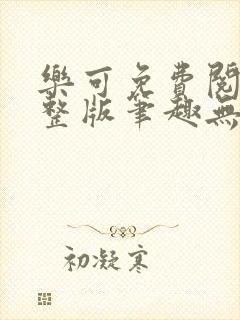 樂可免費閱
整版筆趣無
初凝寒